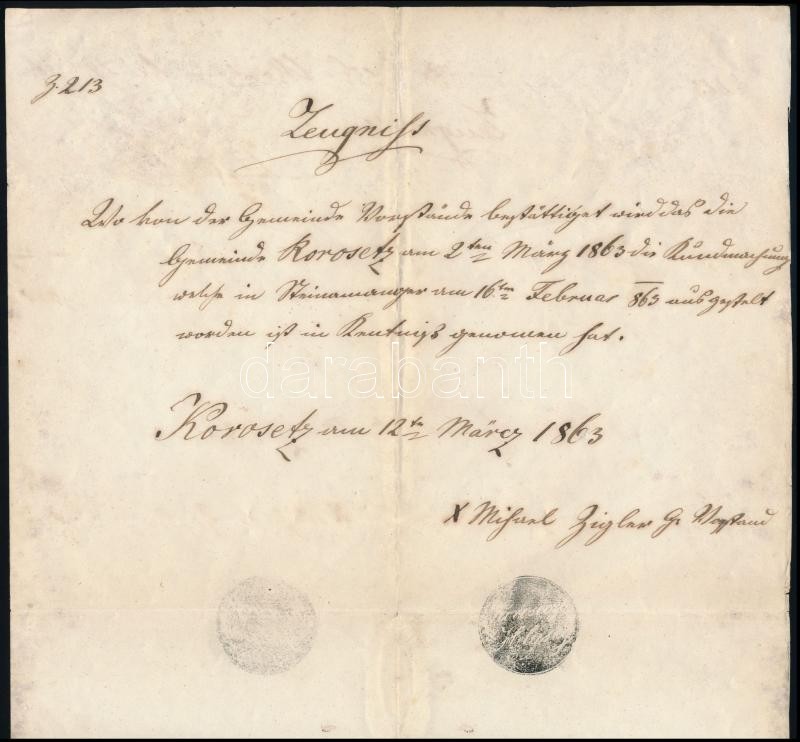 Z. 213
Zeugniss
Wo von der Gemeinde Vorstände bestättiget wird das die
Gemeinde Korosetz am 2ten März 1863 die Kundmachung
welche in Steinamanger am 16ten Februar 863 ausgestelt
worden ist in Kentniß genomen hat.
darabanth
Korosetz am 12ten Märcz 1863
X Mihael Zigler G. Vorstand